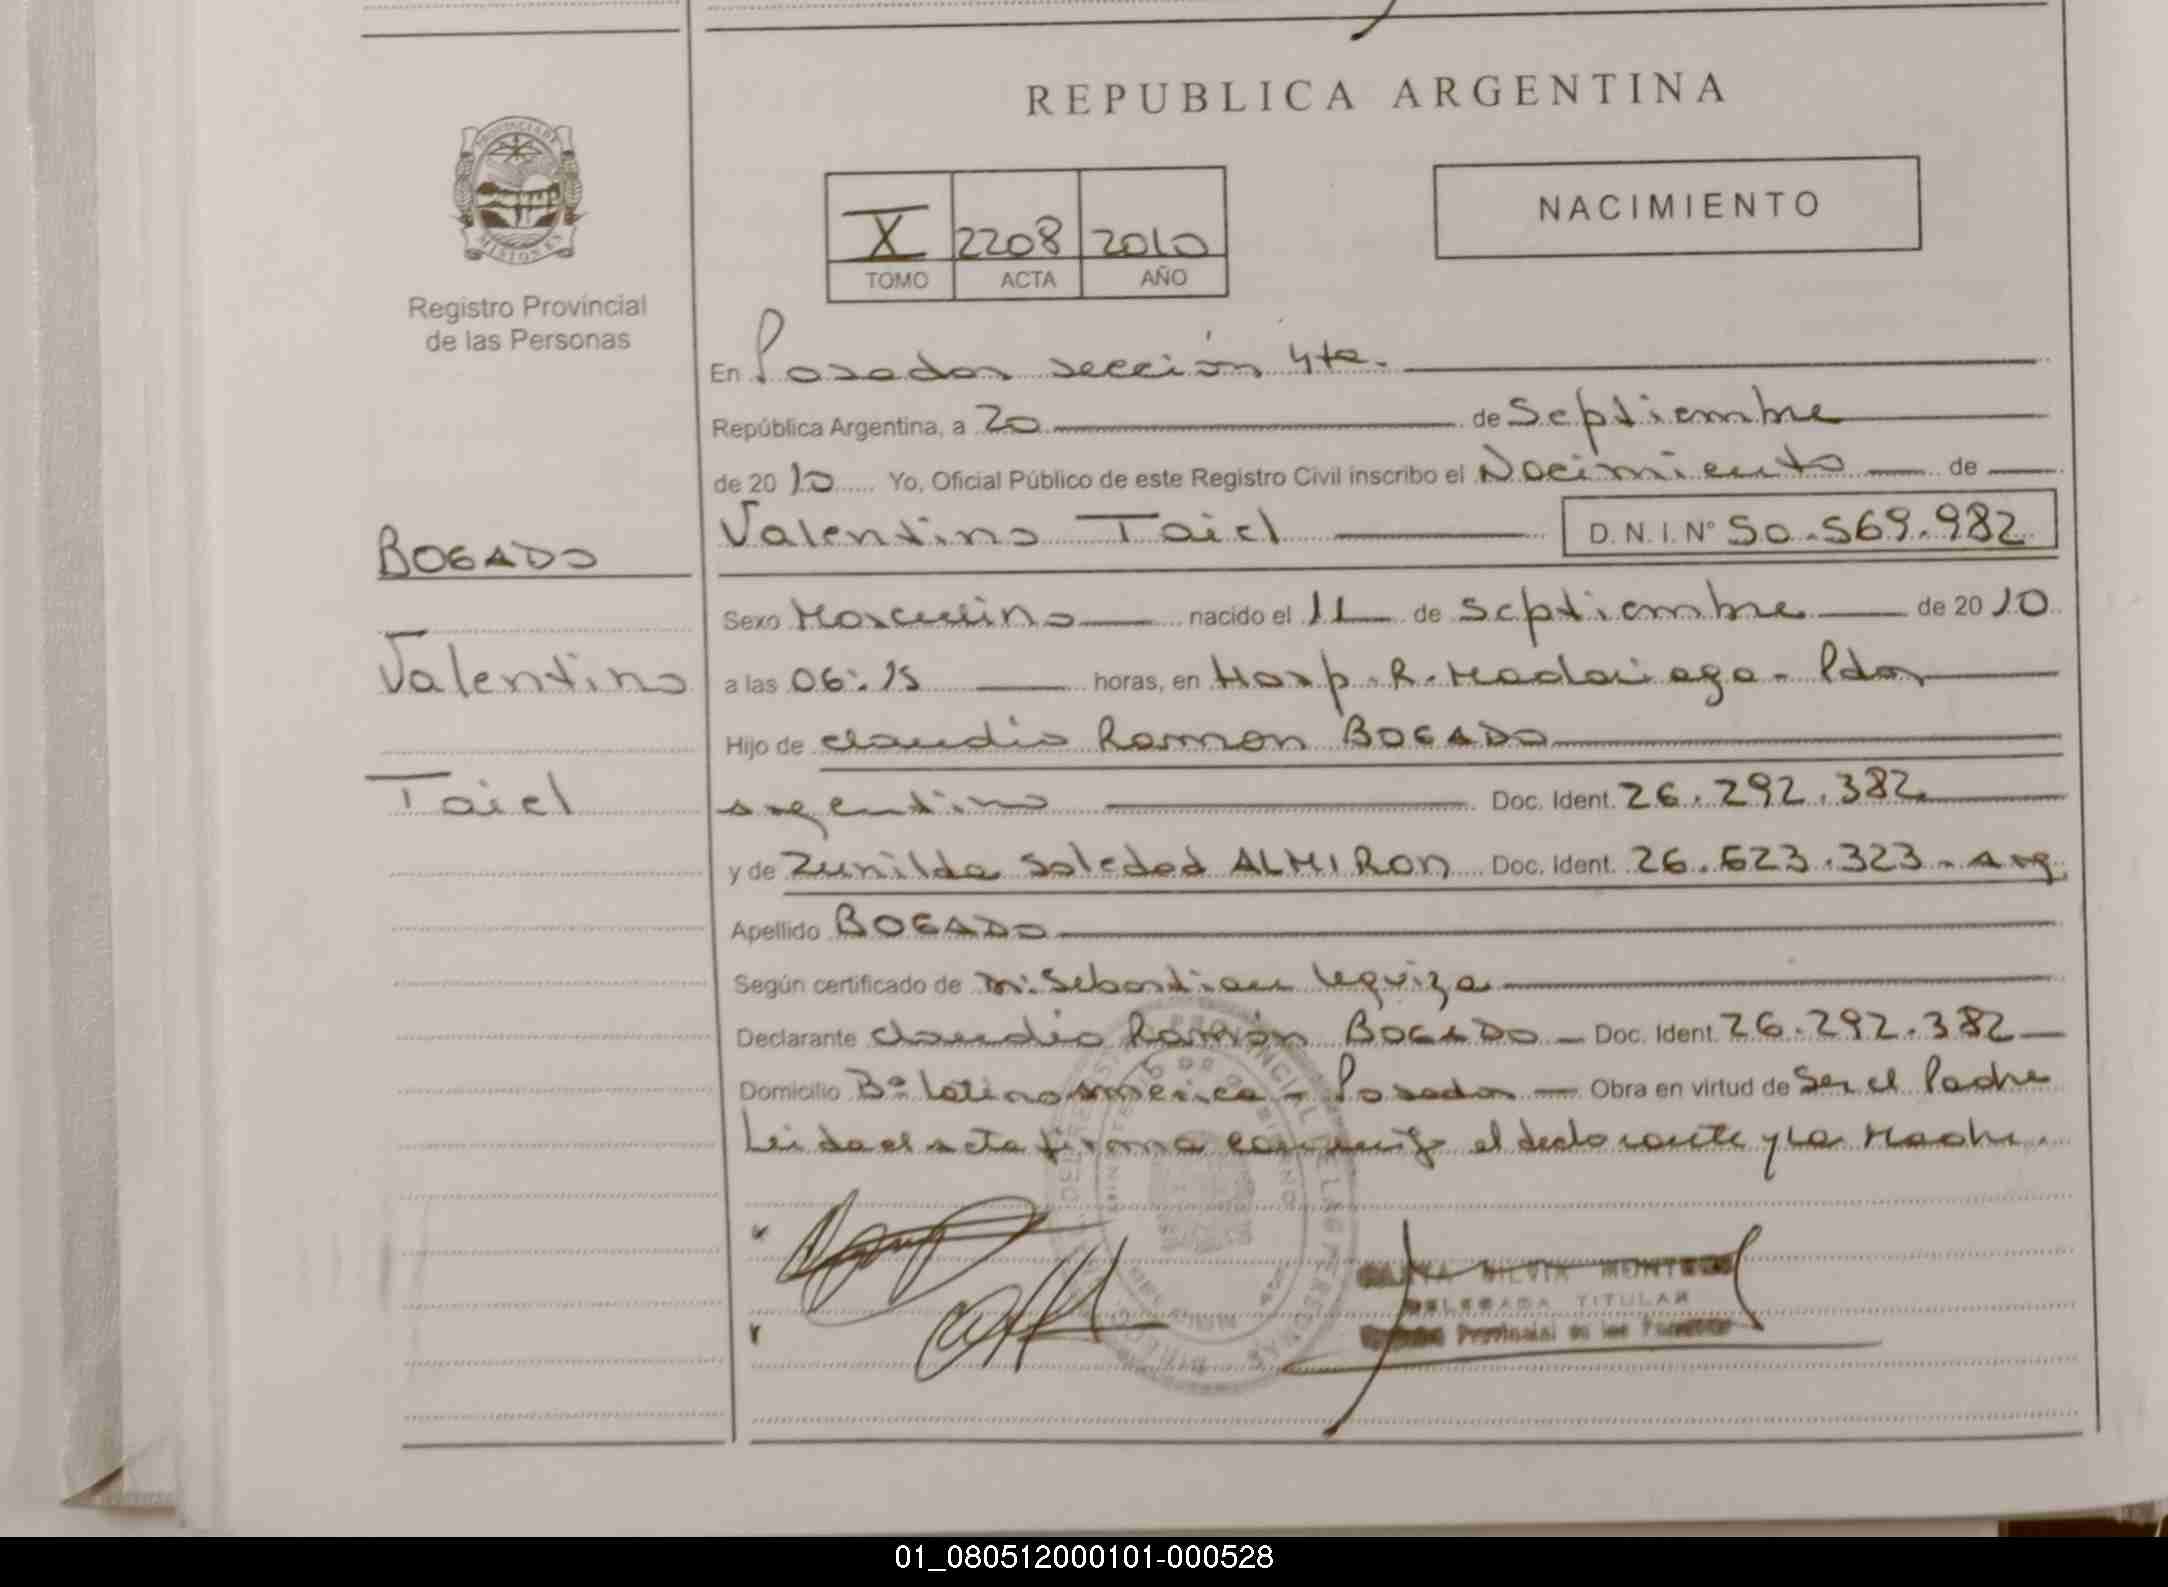 REPUBLICA ARGENTINA
PROVINCIA DE
MISIONES
Registro Provincial
de las Personas
X 2208 2010
TOMO ACTA AÑO
NACIMIENTO
En Posadas sección 4ta.
República Argentina, a 20 de Septiembre
de 2010 Yo, Oficial Público de este Registro Civil inscribo el Nacimiento de
BOGADO
Valentino Taiel D. N. I. N° 50.569.982
Sexo Masculino nacido el 11 de Septiembre de 2010
Valentino
a las 06:15 horas, en Hosp. R. Madariaga - Pdas
Hijo de Claudio Ramon BOGADO
Taiel
argentino Doc. Ident. 26.292.382
y de Zunilda Soledad ALMIRON Doc. Ident. 26.623.323 - arg.
Apellido BOGADO
Según certificado de m: Sebastian Leguiza
Declarante Claudio Ramón BOGADO Doc. Ident. 26.292.382
Domicilio B° Latinoamérica - Posadas Obra en virtud de Ser el Padre
Leida el acta firma conmigo el declarante y la Madre.
SILVIA
DELEGADA TITULAR
Provincial de las Personas
01_080512000101-000528